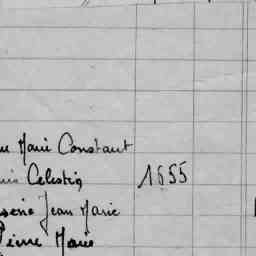 Marie Constant
Celestin 1655
Jean Marie
Pierre Marie